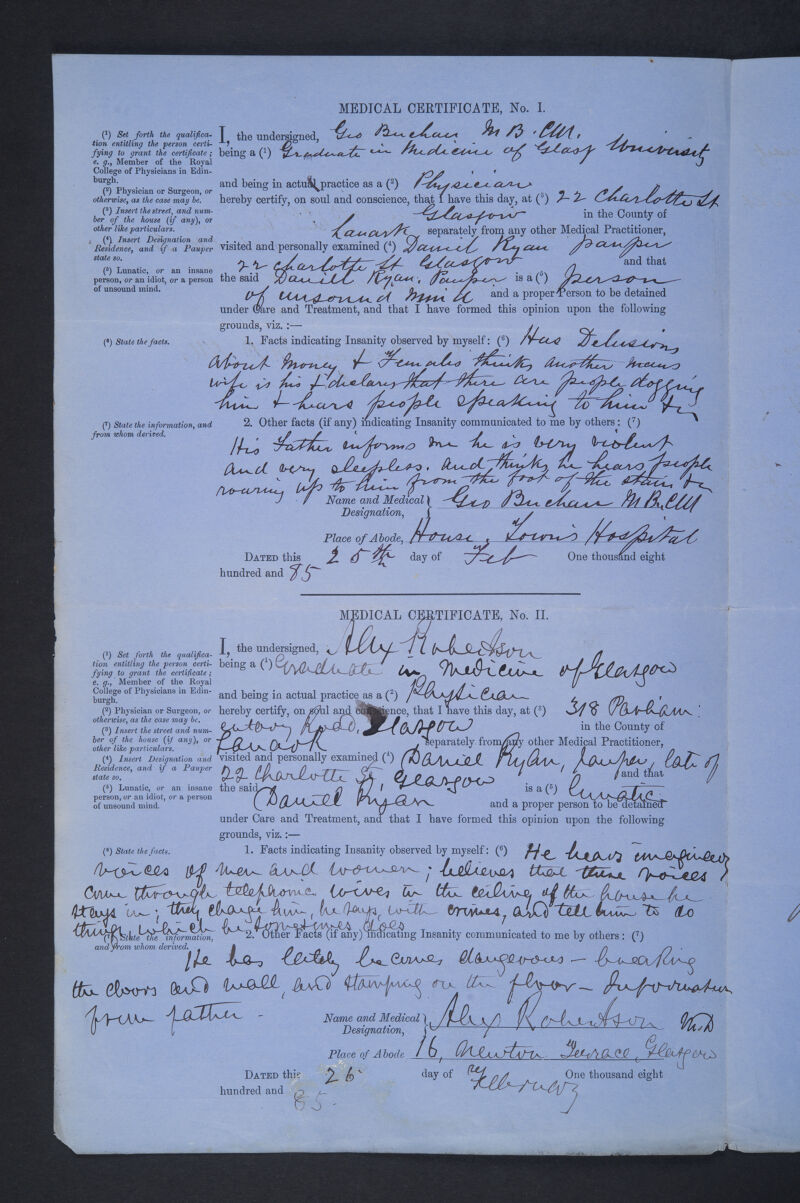 MEDICAL CERTIFICATE, No. I.
(1) Set forth the qualifica-
tion entitling the person certi-
fying to grant the certificate;
e. g., Member of the Royal
College of Physicians in Edin-
burgh.
(2) Physician or Surgeon, or
otherwise, as the case may be.
(3) Insert the street, and num-
ber of the house (if any), or
other like particulars.
(4) Insert Designation and
Residence, and if a Pauper
state so.
(5) Lunatic, or an insane
person, or an idiot, or a person
of unsound mind.
I, the undersigned, Geo Buchan M B. CM.
being a (1) Graduate in Medicine of Glasg University
and being in actual practice as a (2) Physician
hereby certify, on soul and conscience, that I have this day, at (3) 22 Charlotte St
Glasgow in the County of
Lanark separately from any other Medical Practitioner,
visited and personally examined (4) Daniel Ryan pauper
22 Charlotte St Glasgow and that
the said Daniell Ryan. Pauper is a (5) person
of unsound mind and a proper Person to be detained
under Care and Treatment, and that I have formed this opinion upon the following
grounds, viz. :—
(6) State the facts.
1. Facts indicating Insanity observed by myself: (6) Has Delusions
about money & Females thinks another mans
wife is his & declares that there are people dogging
him & hears people speaking to him &c
(7) State the information, and
from whom derived.
2. Other facts (if any) indicating Insanity communicated to me by others: (7)
His Father informs me he is very violent
and very sleepless. and thinks he hears people
roaring up to him from the foot of the stairs &c
Name and Medical Designation, Geo Buchan M B. CM
Place of Abode, House, Town's Hospital
DATED this 25th day of Feb One thousand eight
hundred and 85
MEDICAL CERTIFICATE, No. II.
(1) Set forth the qualifica-
tion entitling the person certi-
fying to grant the certificate;
e. g., Member of the Royal
College of Physicians in Edin-
burgh.
(2) Physician or Surgeon, or
otherwise, as the case may be.
(3) Insert the street and num-
ber of the house (if any), or
other like particulars.
(4) Insert Designation and
Residence, and if a Pauper
state so.
(5) Lunatic, or an insane
person, or an idiot, or a person
of unsound mind.
I, the undersigned, Alex Robertson
being a (1) Graduate in Medicine of Glasgow
and being in actual practice as a (2) Physician
hereby certify, on soul and conscience, that I have this day, at (3) 318 Parliam:
entary Road. Glasgow in the County of
Lanark separately from any other Medical Practitioner,
visited and personally examined (4) Daniel Ryan, pauper, late of
22 Charlotte St, Glasgow and that
the said Daniel Ryan is a (5) lunatic
and a proper person to be detained
under Care and Treatment, and that I have formed this opinion upon the following
grounds, viz. :—
(6) State the facts.
1. Facts indicating Insanity observed by myself: (6) He hears imaginary
voices of men and women; believes that these voices
come through telephonic wires in the ceiling of the house he
stays in; they charge him, he says, with crimes, and tell him to do
things, which he sometimes does
(7) State the information,
and from whom derived.
2. Other Facts (if any) indicating Insanity communicated to me by others: (7)
He has lately become dangerous — breaking
the doors and wall, and stamping on the floor — Information
from father -
Name and Medical Designation, Alex Robertson M.D
Place of Abode 16, Newton Terrace, Glasgow
DATED this 26 day of February One thousand eight
hundred and 85.